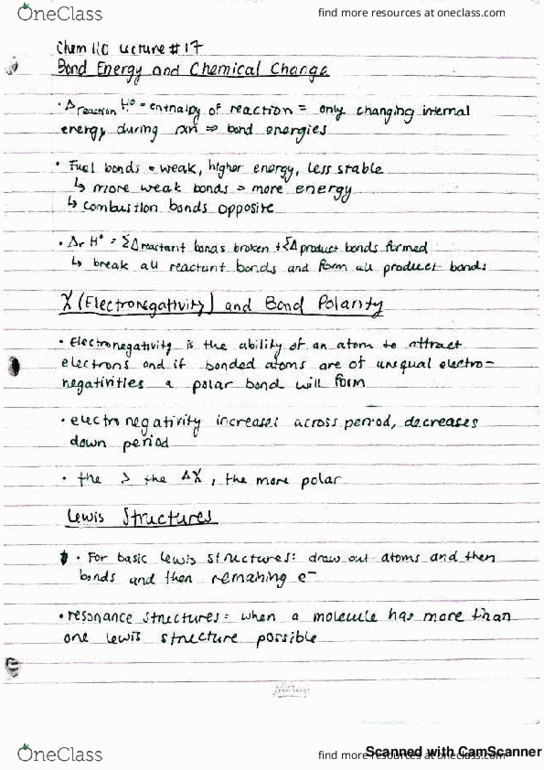 OneClass
find more resources at oneclass.com
Chem 110 Lecture #17
Bond Energy and Chemical Change
• Δreaction H° = enthalpy of reaction = only changing internal
energy during rxn ⇒ bond energies
• Fuel bonds = weak, higher energy, less stable
↳ more weak bonds = more energy
↳ combustion bonds opposite
• Δr H° = ΣΔreactant bonds broken + ΣΔproduct bonds formed
↳ break all reactant bonds and form all product bonds
X (Electronegativity) and Bond Polarity
• Electronegativity is the ability of an atom to attract
electrons and if bonded atoms are of unequal electro-
negativities a polar bond will form
• electronegativity increases across period, decreases
down period
• the > the ΔX, the more polar
Lewis Structures
• For basic Lewis structures: draw out atoms and then
bonds and then remaining e⁻
• resonance structures: when a molecule has more than
one lewis structure possible
Hilroy
OneClass
find more resources at oneclass.com
Scanned with CamScanner